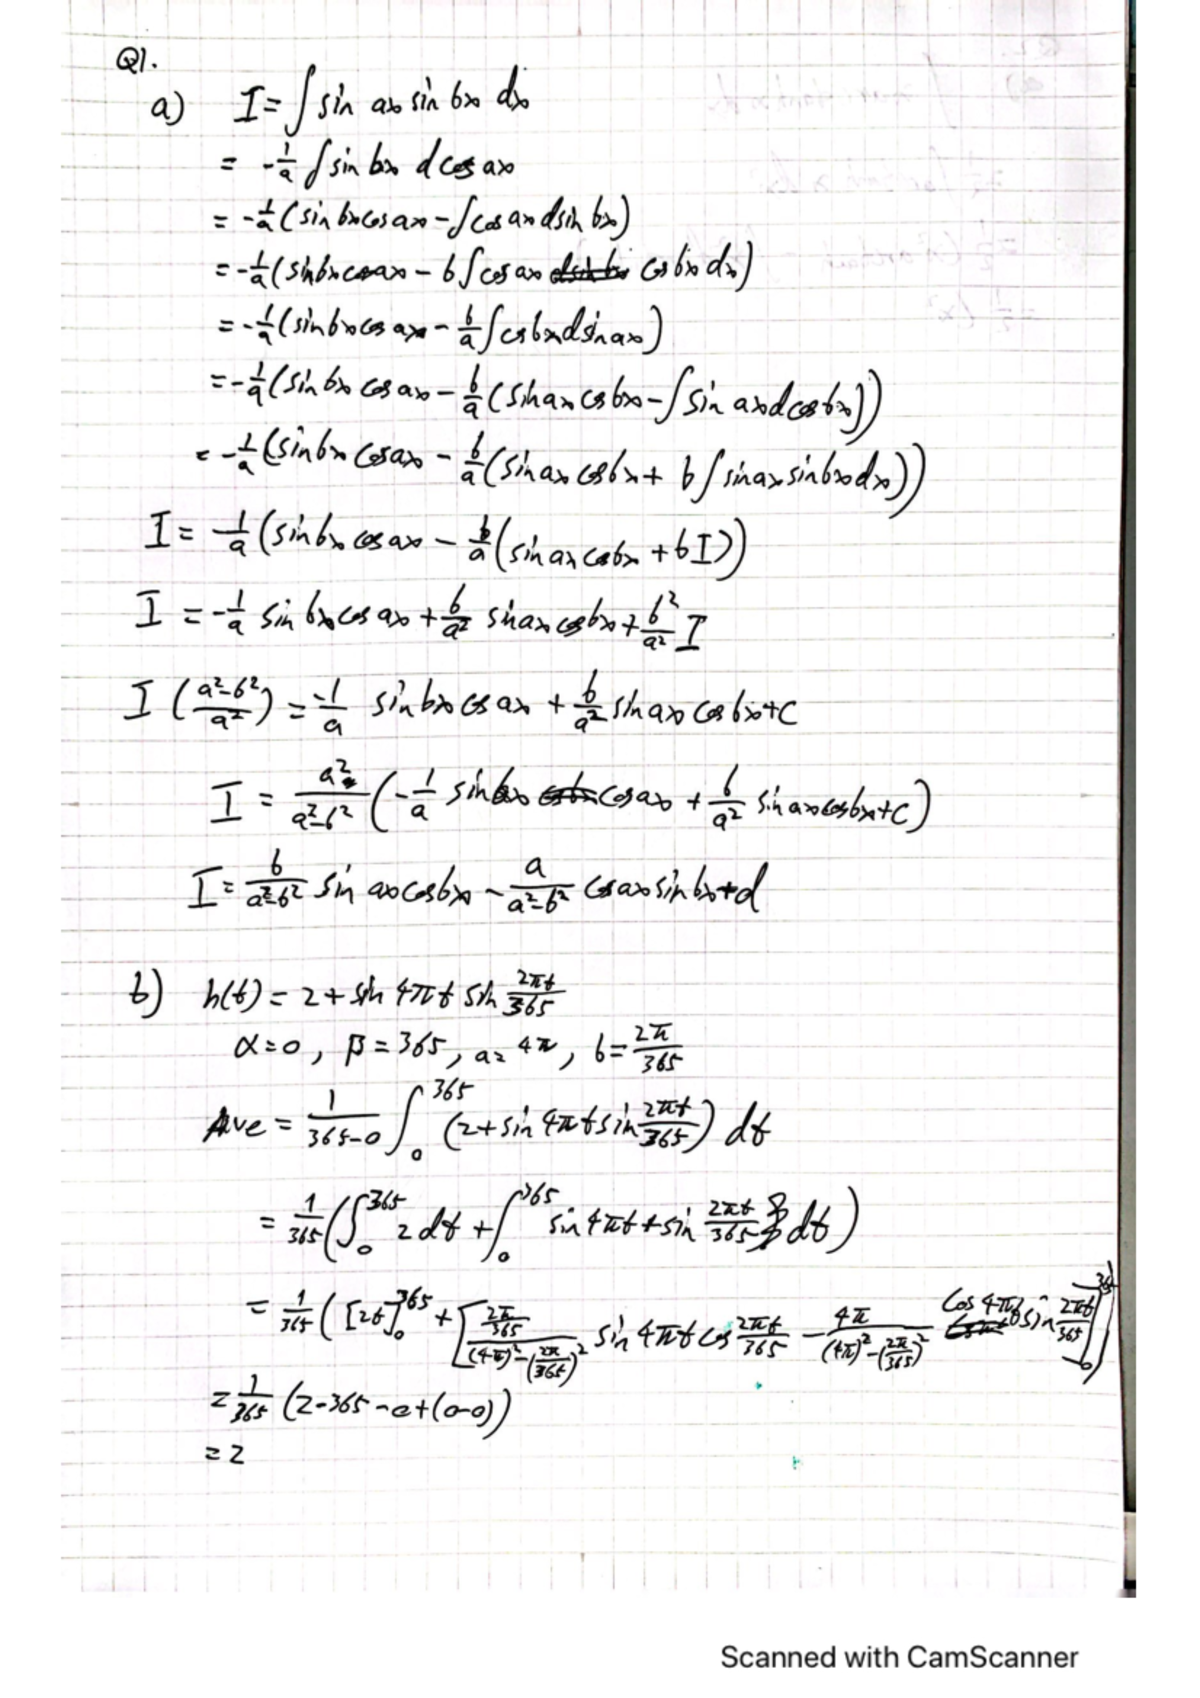 Q1.
a) I = ∫ sin ax sin bx dx
= -1/a ∫ sin bx d cos ax
= -1/a (sin bx cos ax - ∫ cos ax d sin bx)
= -1/a (sin bx cos ax - b ∫ cos ax cos bx dx)
= -1/a (sin bx cos ax - b/a ∫ cos bx d sin ax)
= -1/a (sin bx cos ax - b/a (sin ax cos bx - ∫ sin ax d cos bx))
= -1/a (sin bx cos ax - b/a (sin ax cos bx + b ∫ sin ax sin bx dx))
I = -1/a (sin bx cos ax - b/a (sin ax cos bx + bI))
I = -1/a sin bx cos ax + b/a² sin ax cos bx + b²/a² I
I ((a²-b²)/a²) = -1/a sin bx cos ax + b/a² sin ax cos bx + c
I = a²/(a²-b²) (-1/a sin bx cos ax + b/a² sin ax cos bx + c)
I = b/(a²-b²) sin ax cos bx - a/(a²-b²) cos ax sin bx + d
b) h(t) = 2 + sin 4πt sin 2πt/365
α = 0, β = 365, a = 4π, b = 2π/365
Ave = 1/(365-0) ∫₀³⁶⁵ (2 + sin 4πt sin 2πt/365) dt
= 1/365 (∫₀³⁶⁵ 2 dt + ∫₀³⁶⁵ sin 4πt + sin 2πt/365 dt)
= 1/365 ([2t]₀³⁶⁵ + [(2π/365)/((4π)²-(2π/365)²) sin 4πt cos 2πt/365 - 4π/((4π)²-(2π/365)²) cos 4πt sin 2πt/365]₀³⁶⁵)
= 1/365 (2-365 - 0 + (0-0))
= 2
Scanned with CamScanner